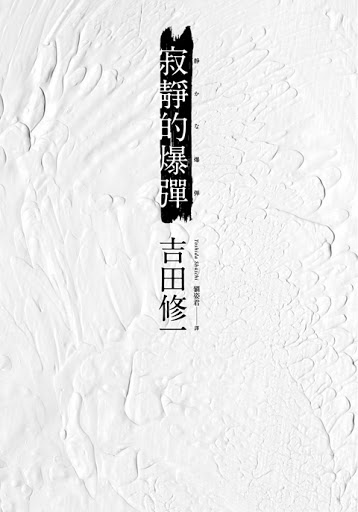 寂靜的爆彈
静かな爆弾
吉田修一
Yoshida Shuichi
劉姿君——譯